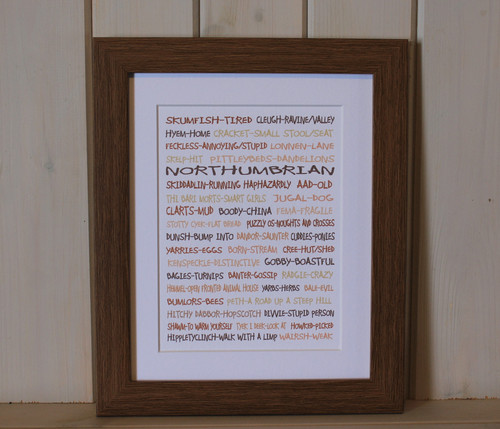 SKUMFISH-TIRED CLEUGH-RAVINE/VALLEY
HYEM-HOME CRACKET-SMALL STOOL/SEAT
FECKLESS-ANNOYING/STUPID LONNEN-LANE
SKELP-HIT PITTLEYBEDS-DANDELIONS
NORTHUMBRIAN
SKIDDADLIN-RUNNING HAPHAZARDLY AAD-OLD
THE BARI MORTS-SMART GIRLS JUGAL-DOG
CLARTS-MUD BOODY-CHINA FEMA-FRAGILE
STOTTY CYEK-FLAT BREAD PUZZLY OS-NOUGHTS AND CROSSES
DUNSH-BUMP INTO DANDOR-SAUNTER CUDDLES-PONIES
YARRIES-EGGS BORN-STREAM CREE-HUT/SHED
KENSPECKLE-DISTINCTIVE GOBBY-BOASTFUL
BAGIES-TURNIPS BANTER-GOSSIP RADGIE-CRAZY
HEMMEL-OPEN FRONTED ANIMAL HOUSE YARBS-HERBS BALE-EVIL
BUMLORS-BEES PETH-A ROAD UP A STEEP HILL
HITCHY DABBOR-HOPSCOTCH DIVVIE-STUPID PERSON
SHAWM-TO WARM YOURSELF DEEK-LOOK AT HOWKED-PICKED
HIPPLETYCLINCH-WALK WITH A LIMP WAIRSH-WEAK